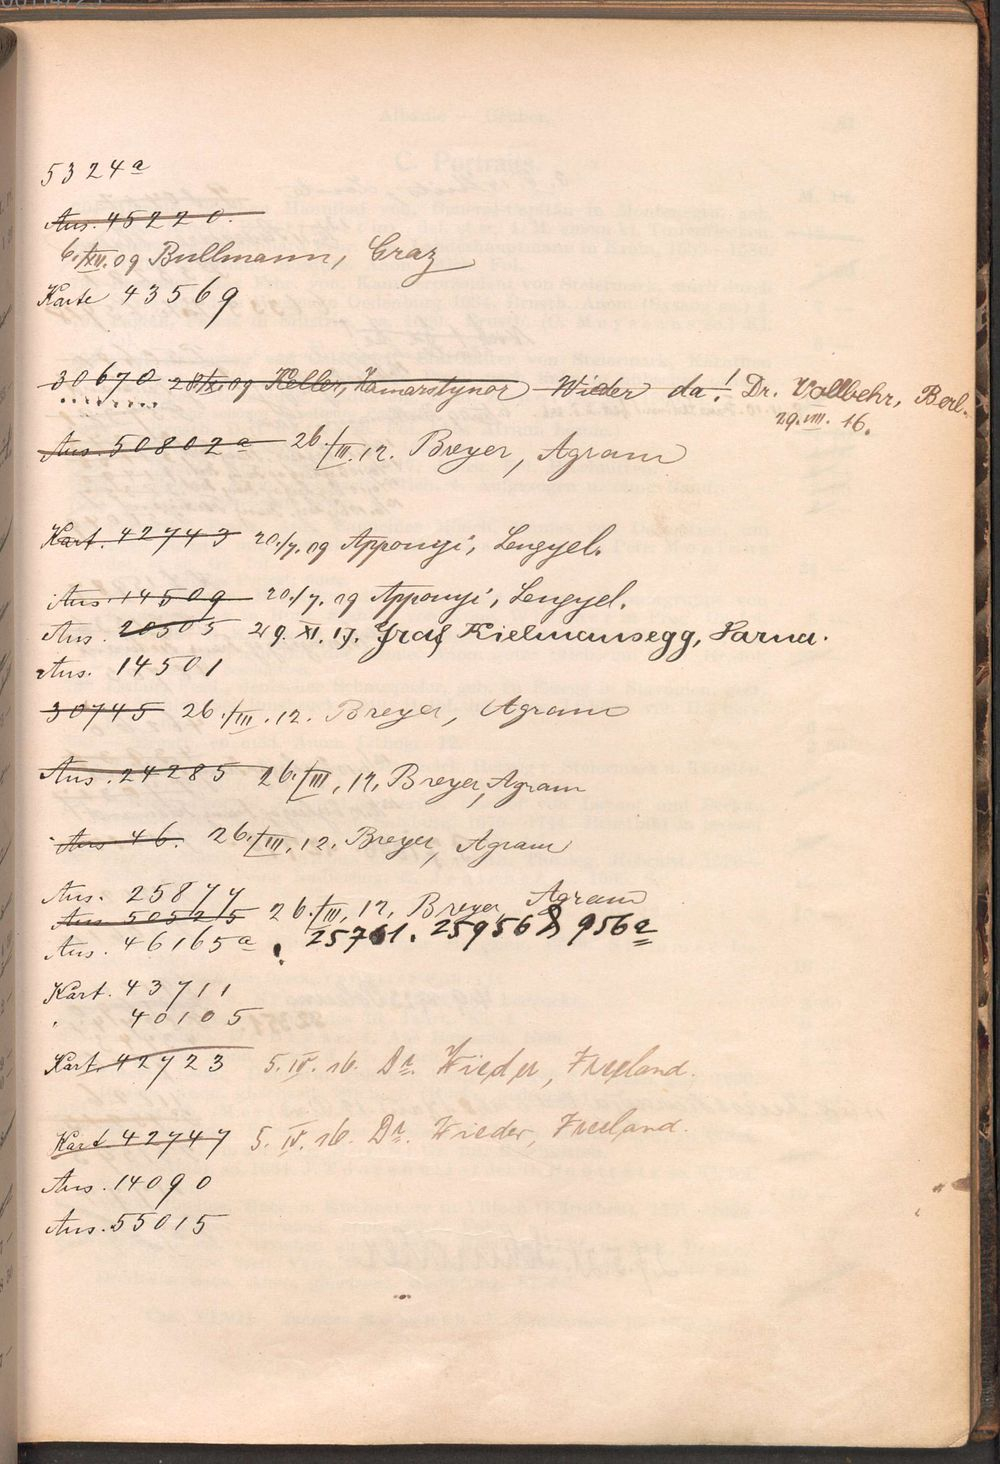 5324a
Ans. 45220.
6./XII. 09 Bullmann, Graz
Karte 43569
30670 28/IX 09 Keller, Hamarstynor Wieder da! Dr. Vollbehr, Berl.
29. VIII. 16.
Ans. 50802a 26./III. 12. Breyer, Agram
Kart. 42743 20./7. 09 Apponyi, Lengyel.
Ans. 14509 20./7. 09 Apponyi, Lengyel.
Ans. 20505 29. XI. 17. Graf Kielmansegg, Sarna.
Ans. 14501
30745 26./III. 12. Breyer, Agram
Ans. 24285 26./III, 12, Breyer, Agram
Ans 46. 26./III, 12. Breyer, Agram
Ans. 25877
Ans 50525 26./III, 12, Breyer, Agram
Ans. 46165a, 25761. 25956 & 956a
Kart. 43711
" 40105
Kart. 42723 5. IV. 16. Dr. Wieder, Freeland.
Kart 42747 5. IV. 16. Dr. Wieder, Freeland.
Ans. 14090
Ans. 55015